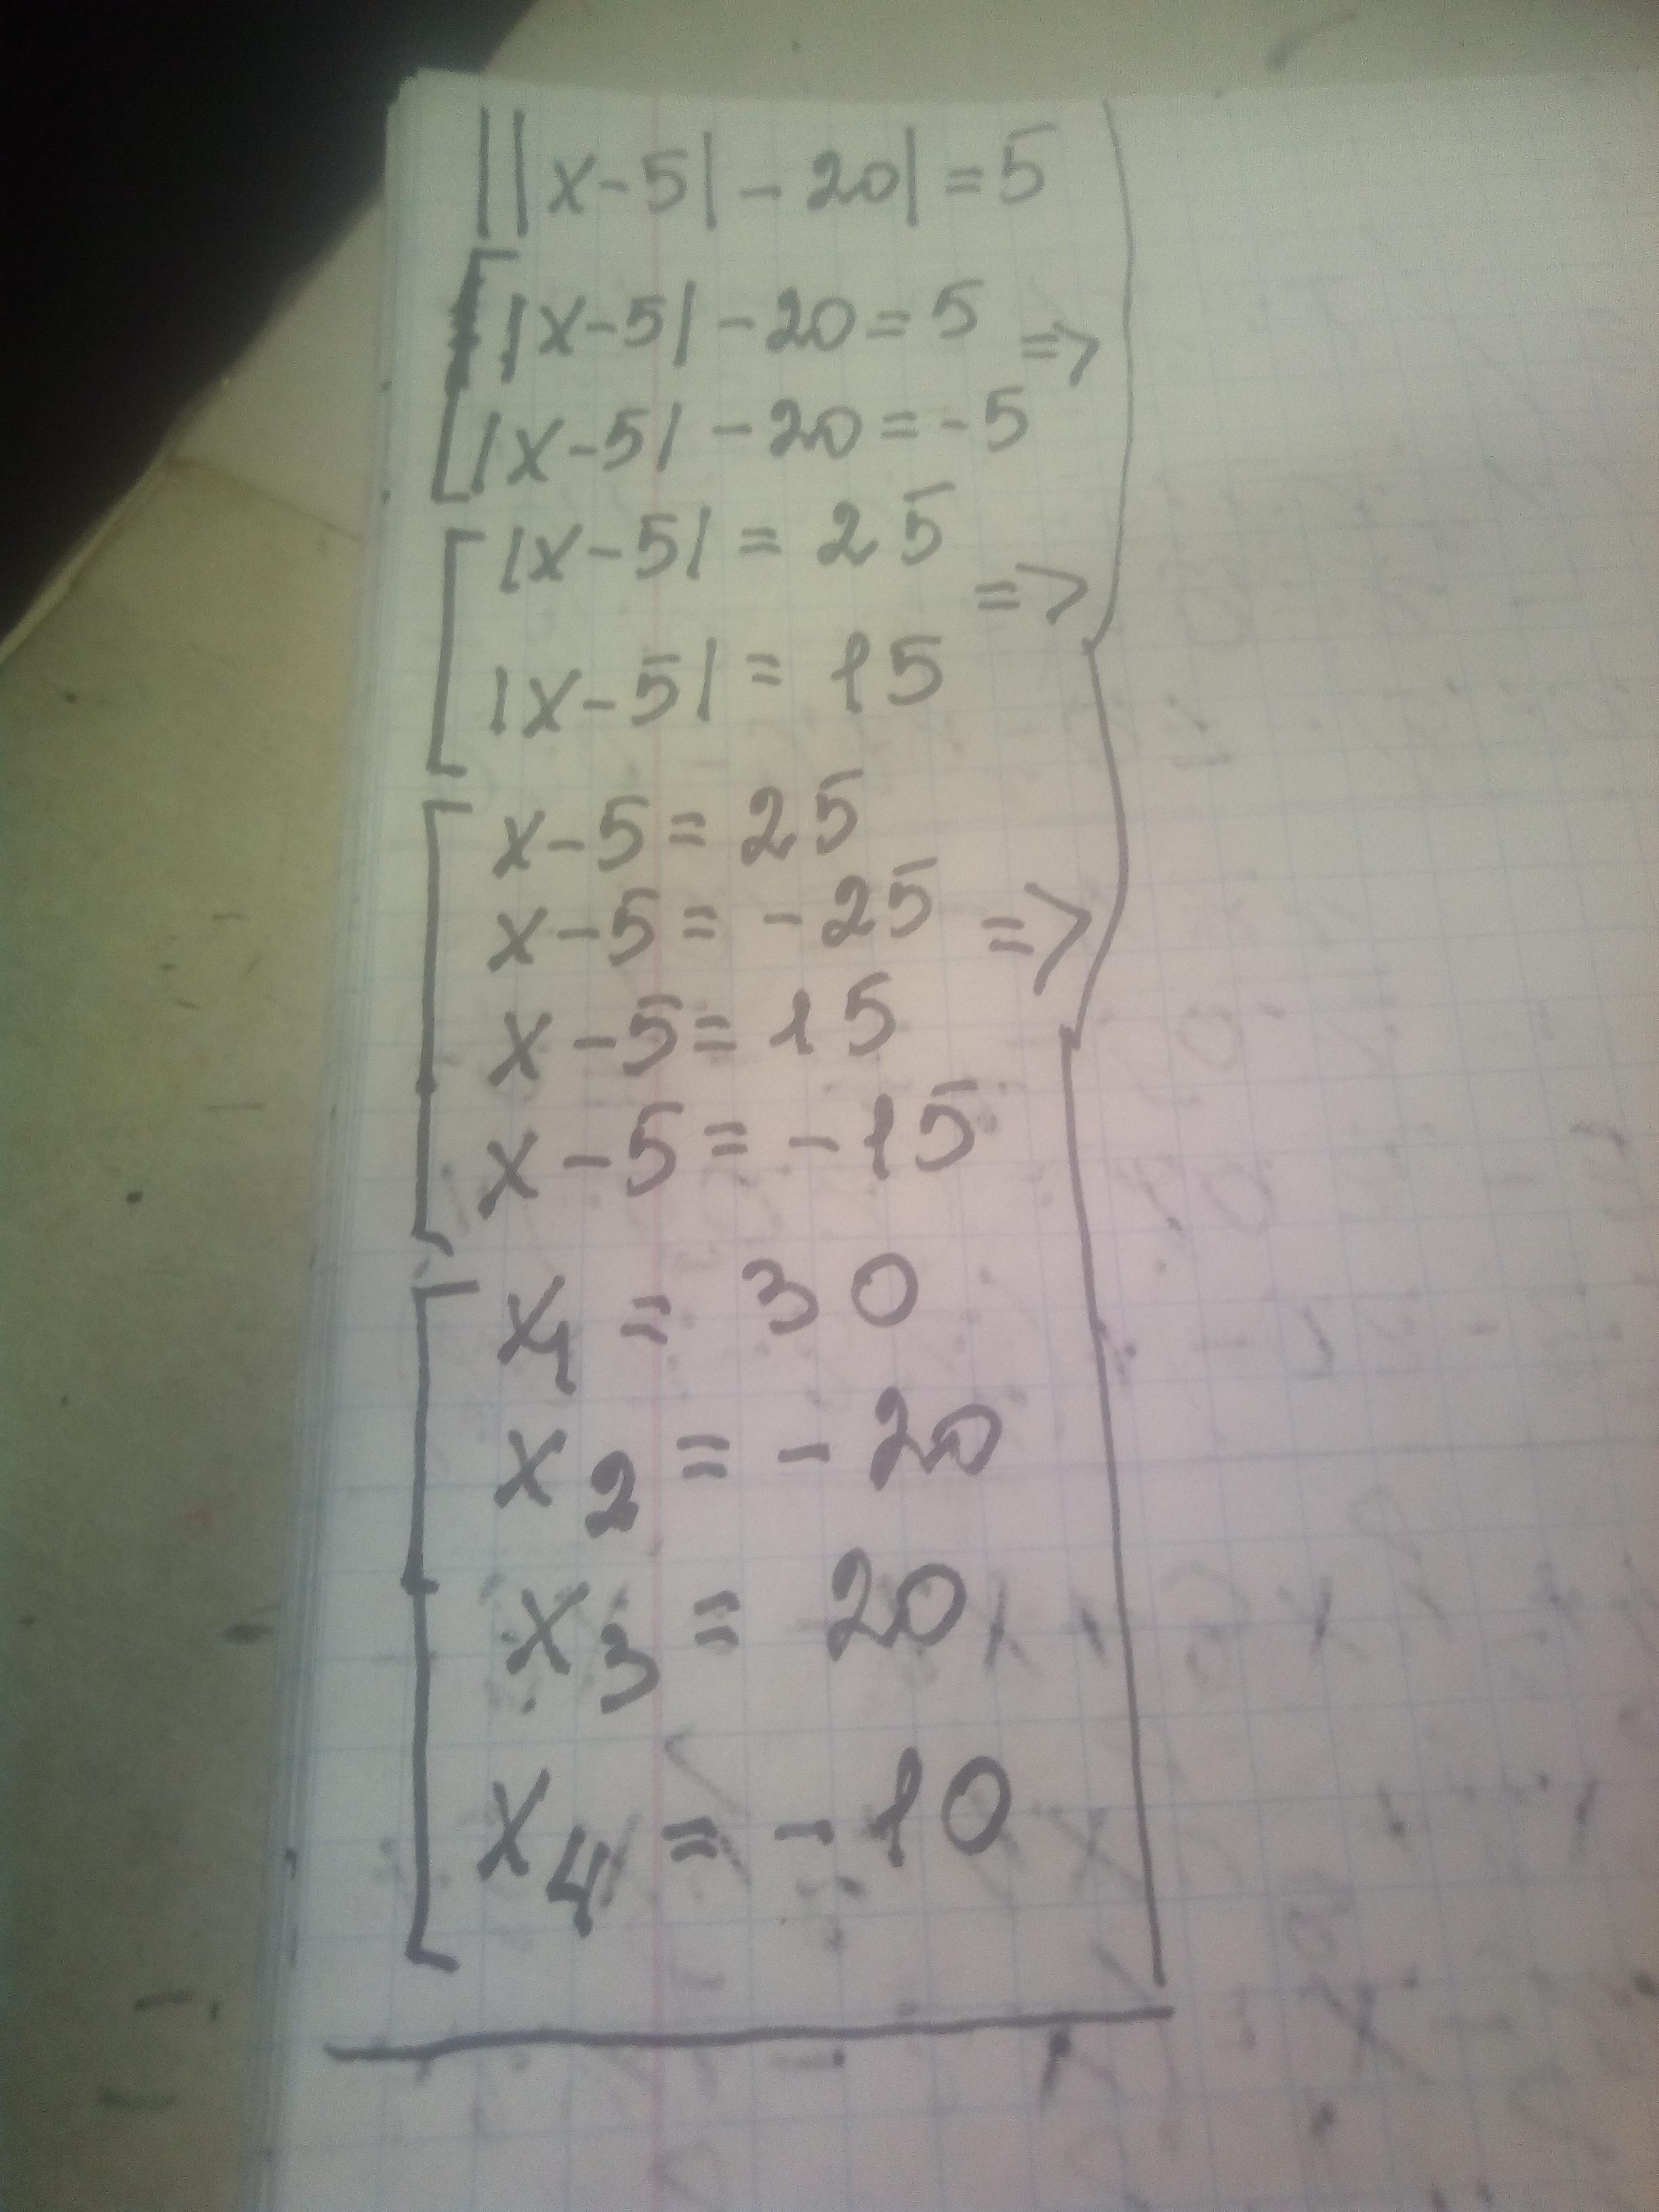 ||x-5| - 20| = 5
|x-5| - 20 = 5 =>
|x-5| - 20 = -5
|x-5| = 25 =>
|x-5| = 15
x-5 = 25
x-5 = -25 =>
x-5 = 15
x-5 = -15
x₁ = 30
x₂ = -20
x₃ = 20
x₄ = -10